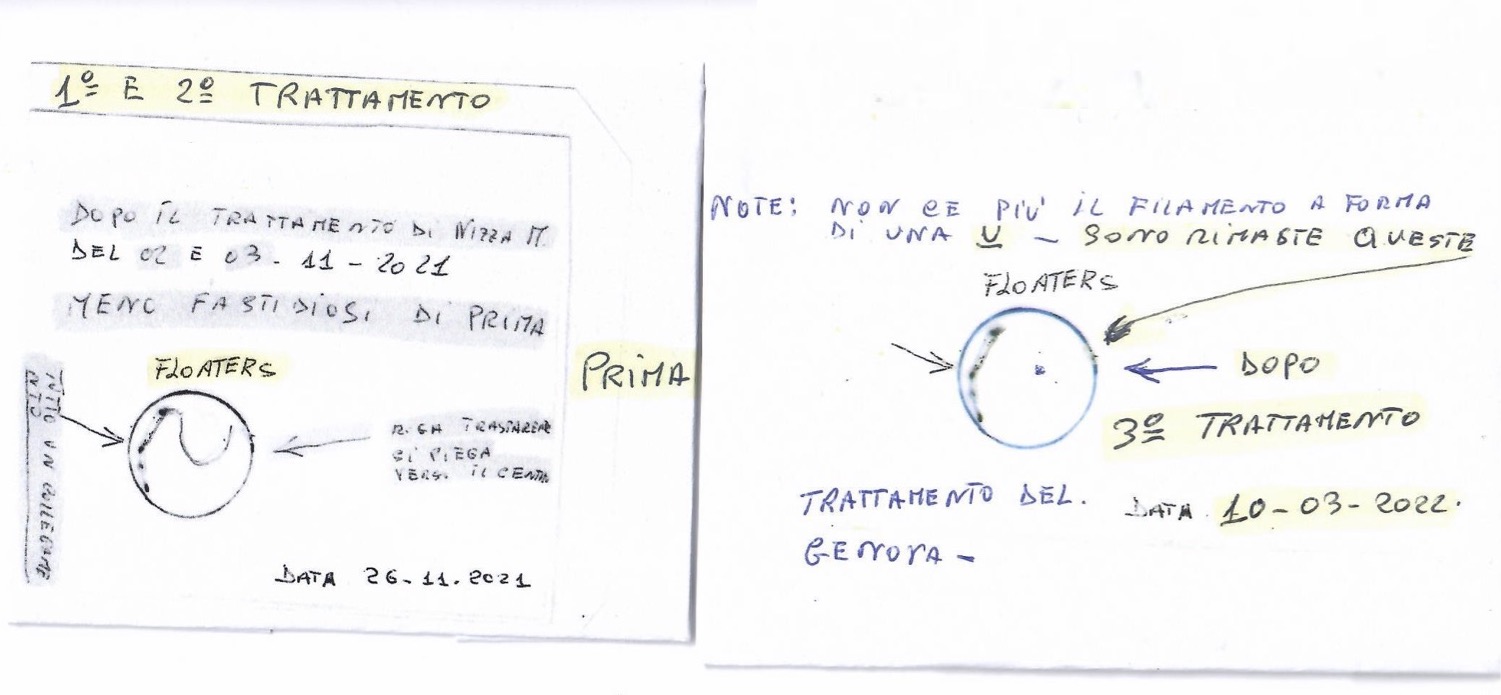 1º E 2º TRATTAMENTO
DOPO IL TRATTAMENTO DI NIZZA M.
DEL 02 E 03-11-2021
MENO FASTIDIOSI DI PRIMA
FLOATERS
TUTTO UN COLLEGAMENTO
RIGA TRASPARENTE
SI PIEGA
VERSO IL CENTRO
DATA 26.11.2021
PRIMA
NOTE: NON CE PIU' IL FILAMENTO A FORMA
DI UNA U - SONO RIMASTE QUESTE
FLOATERS
DOPO
3º TRATTAMENTO
TRATTAMENTO DEL. DATA 10-03-2022.
GENOVA -